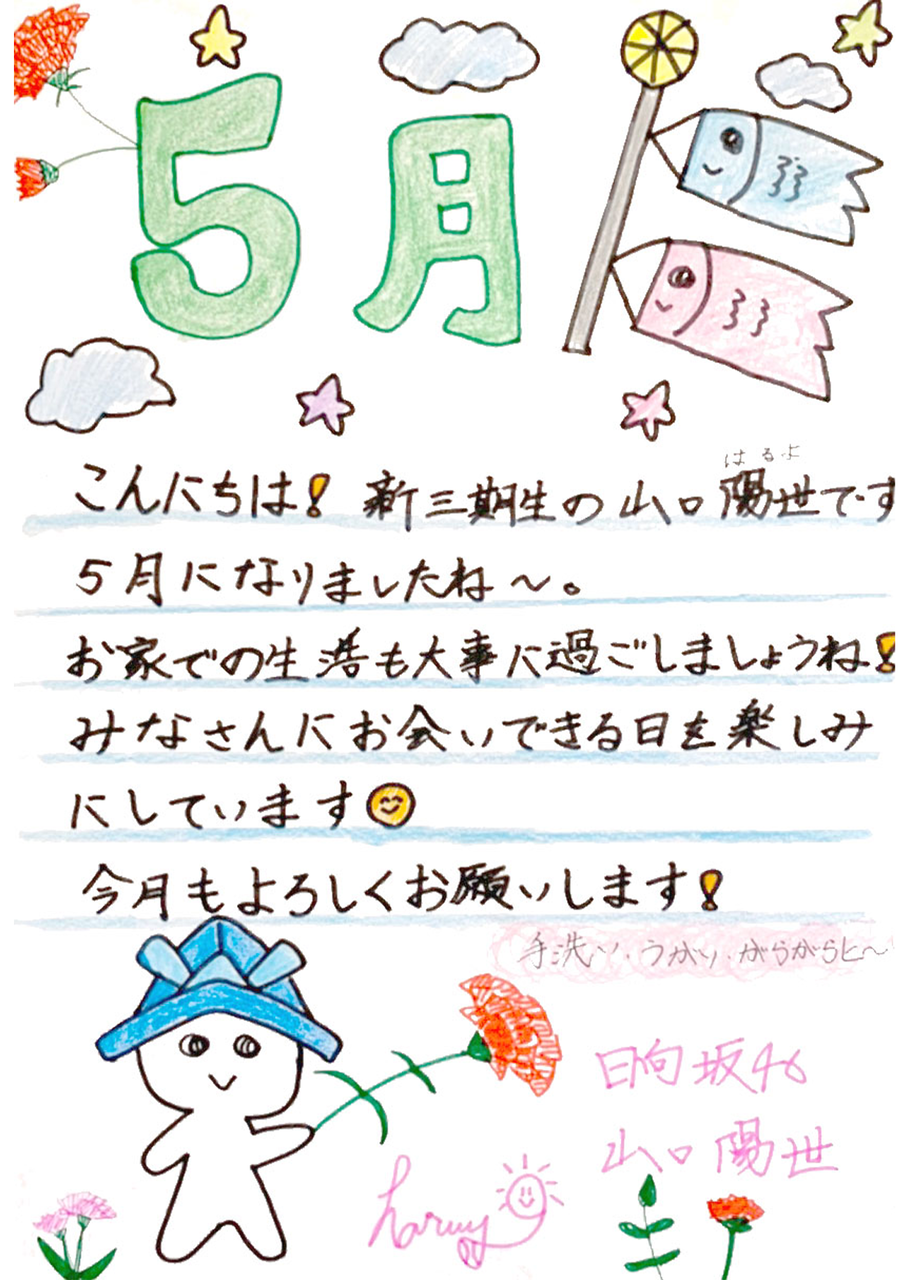 5月
はるよ
こんにちは! 新三期生の山口陽世です
5月になりましたね〜。
お家での生活も大事に過ごしましょうね!
みなさんにお会いできる日を楽しみ
にしています
今月もよろしくお願いします!
手洗い・うがい・がらがらピ〜
日向坂46
山口陽世
haruy